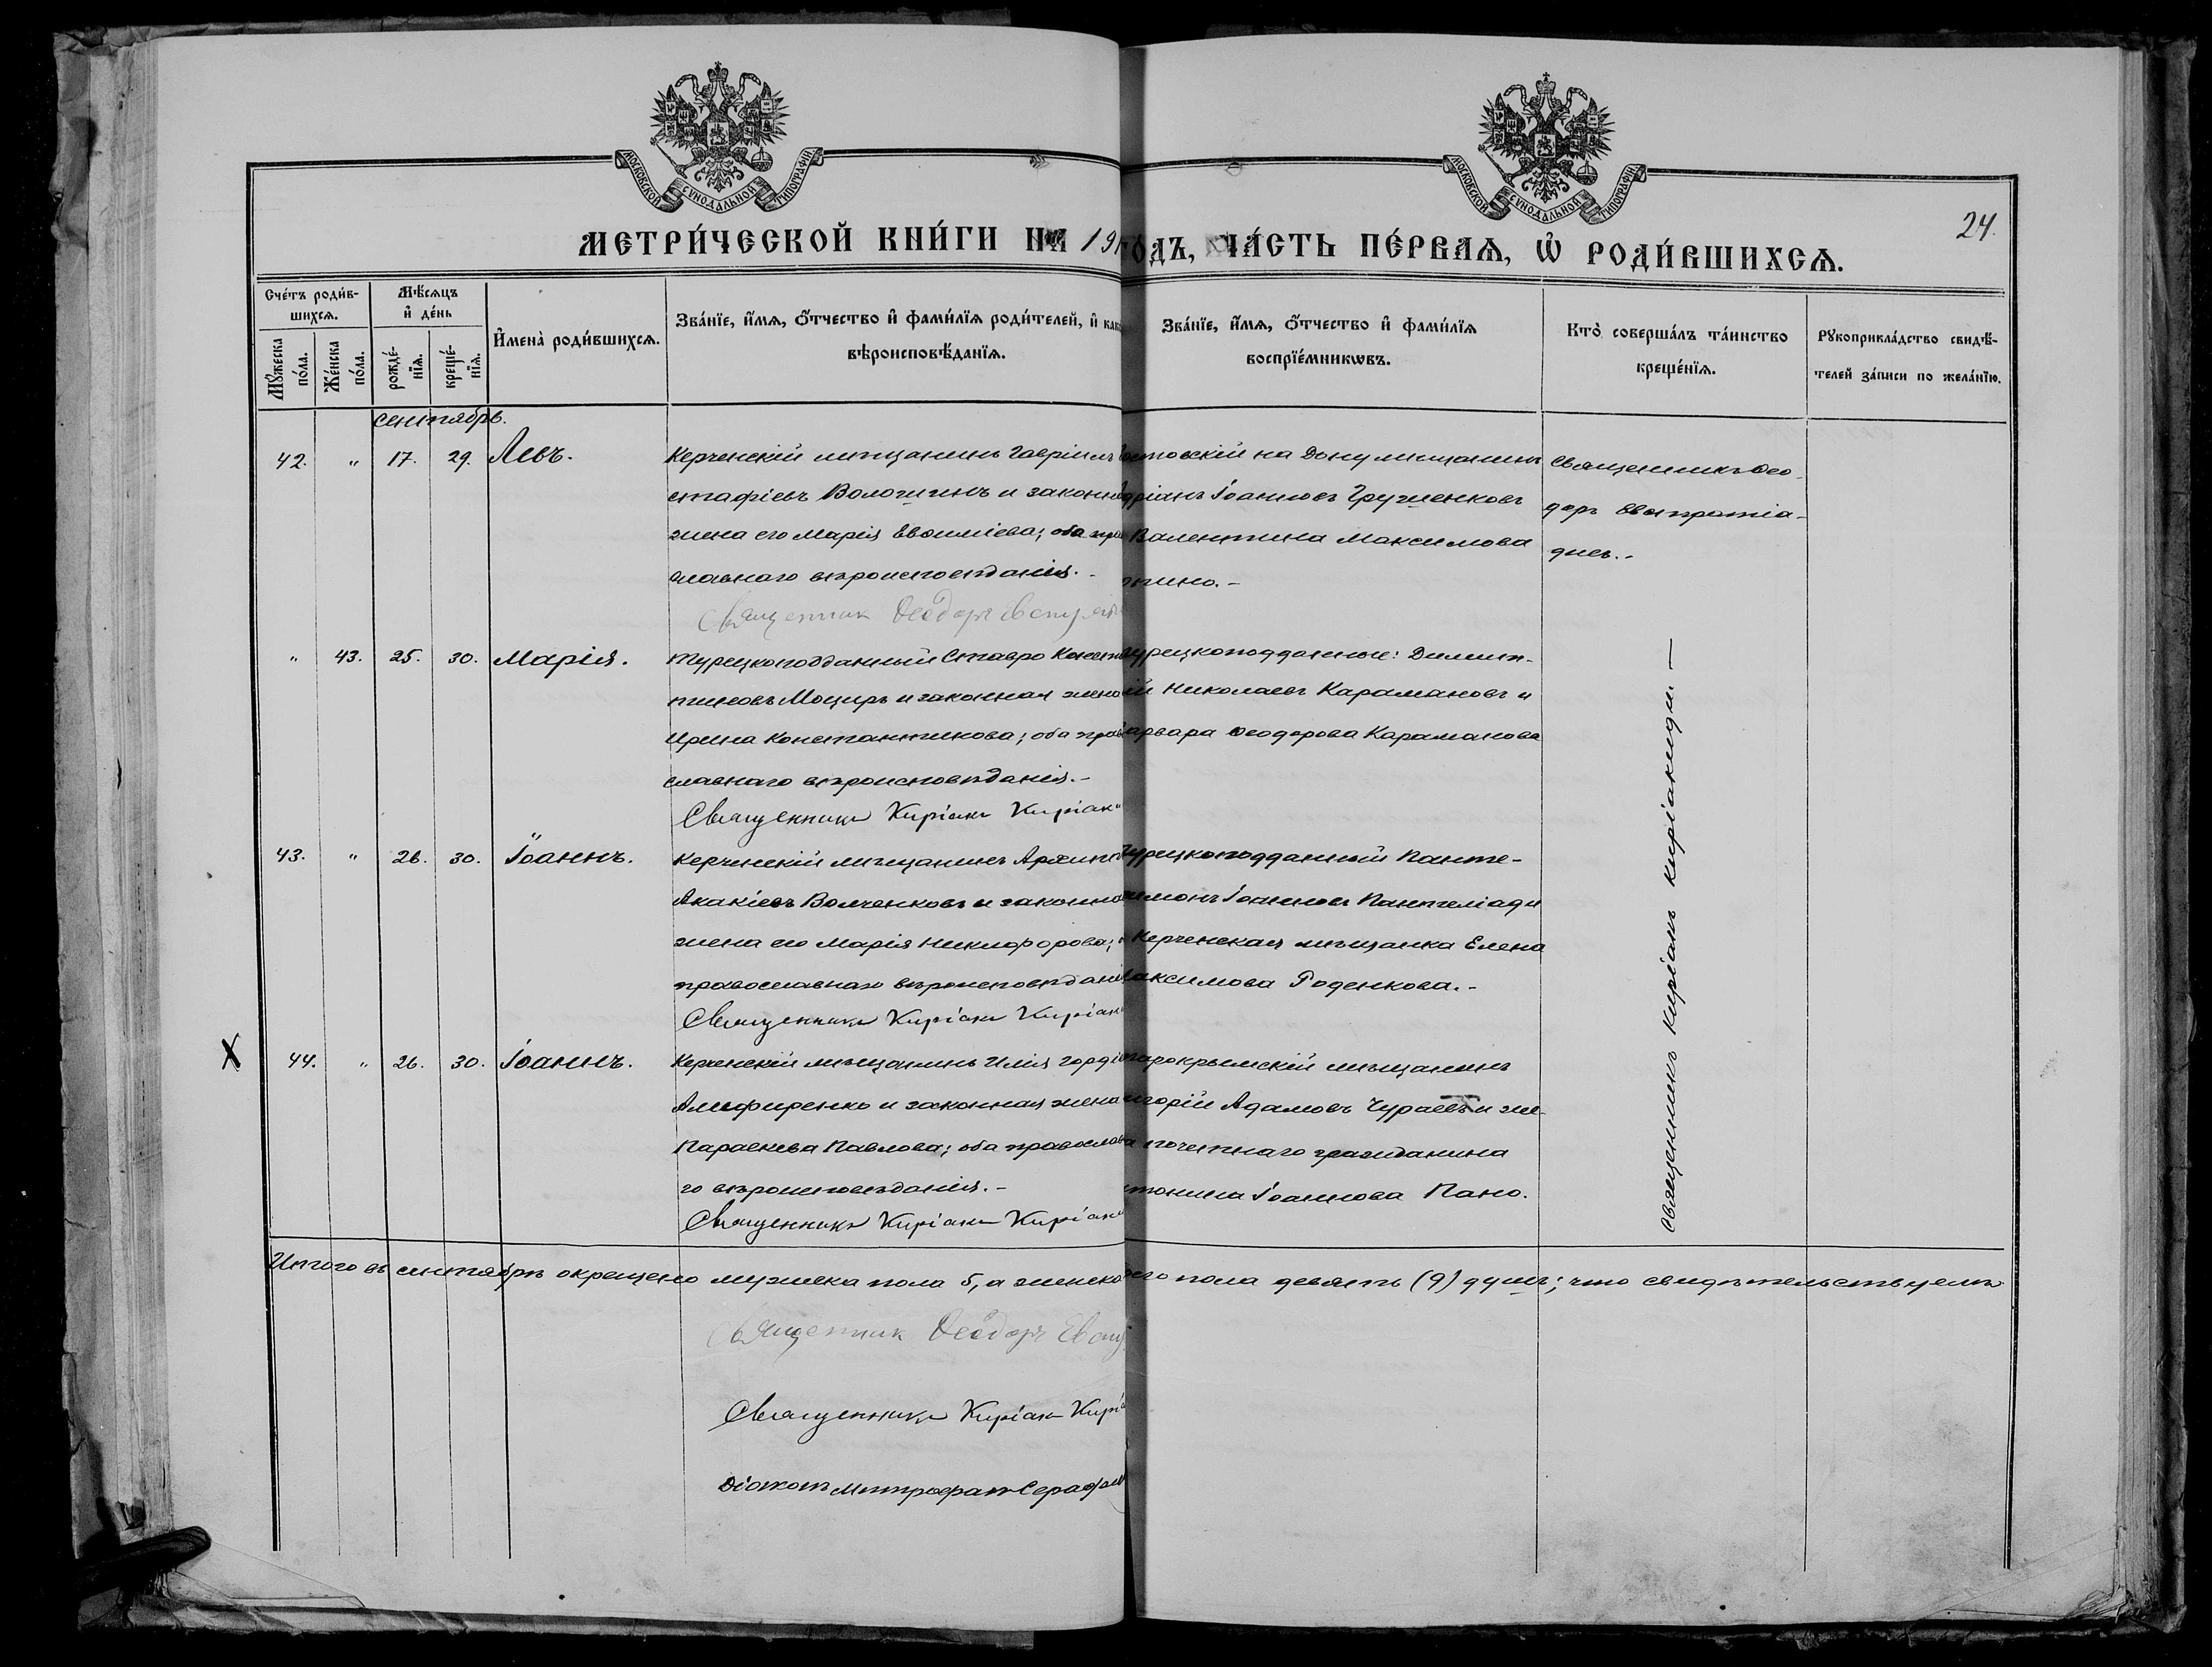 МОСКОВСКОЙ СУНОДАЛЬНОЙ ТИПОГРАФІИ
МОСКОВСКОЙ СУНОДАЛЬНОЙ ТИПОГРАФІИ
24.
МЕТРИ́ЧЕСКОЙ КНИ́ГИ НА 19
ГОДЪ, ЧА́СТЬ ПЕ́РВАѦ, Ѡ РОДИ́ВШИХСѦ.
Сче́тъ роди́в-
шихсѧ.
Мꙋ́жеска по́ла.
Же́нска по́ла.
Мѣ́сѧцъ
и҆ де́нь
рожде́-нїѧ.
креще́-нїѧ.
И҆мена̀ роди́вшихсѧ.
Зва́нїе, и҆́мѧ, ѻ҆́тчество и҆ фами́лїѧ роди́телей, и҆ как
вѣроисповѣ́данїѧ.
Зва́нїе, и҆́мѧ, ѻ҆́тчество и҆ фами́лїѧ
воспрїе́мникѡвъ.
Кто̀ соверша́лъ та́инство
креще́нїѧ.
Рꙋкоприкла́дство свидѣ́-
телей за́писи по жела́нїю.
сентябрь.
42. " 17. 29. Левъ.
Керченскій мѣщанинъ Гавріилъ
стафіевъ Вологинъ и законн
жена его Марія Евѳиміева; оба пра
славнаго вѣроисповѣданія.-
Священник Ѳеодоръ
стовскій на Дону мѣщанинъ
дріанъ Іоанновъ Груженковъ
Валентина Максимова
Священникъ Ѳео-
доръ Евстратіа-
диев.-
" 43. 25. 30. Марія.
Турецкоподданный Ставро Конст
тиновъ Моциръ и законная жена
Ирина Константинова; оба прав
славнаго вѣроисповѣданія.-
Священникъ Киріакъ Киріак
урецкоподданные: Димит-
ій Николаевъ Карамановъ и
арвара Ѳеодорова Караманова
43. " 26. 30. Іоаннъ.
Керченскій мѣщанинъ Архипъ
Акакіевъ Волченковъ и законна
жена его Марія Никифорова;
православнаго вѣроисповѣдані
Священникъ Киріакъ Киріак
Турецкоподданный Панте-
леимонъ Іоанновъ Пантеліади
Керченская мѣщанка Елена
аксимова Роденкова.-
Х 44. " 26. 30. Іоаннъ.
Керченскій мѣщанинъ Илія Горді
Алифиренко и законная жена
Параскева Павлова; оба православна
го вѣроисповѣданія.-
Священникъ Киріакъ Киріак
тарокрымскій мѣщанинъ
игорій Адамовъ Чураевъ и же-
а почетнаго гражданина
нтонина Іоаннова Пано.
Священникъ Киріакъ Киріакиди —
Итого въ сентябрѣ окрещено мужеска пола 5, а женско
его пола девять (9) душъ; что свидѣтельствуемъ
Священник Ѳеодоръ Евст
Священникъ Киріакъ Кирі
Діаконъ Митрофанъ Серафим